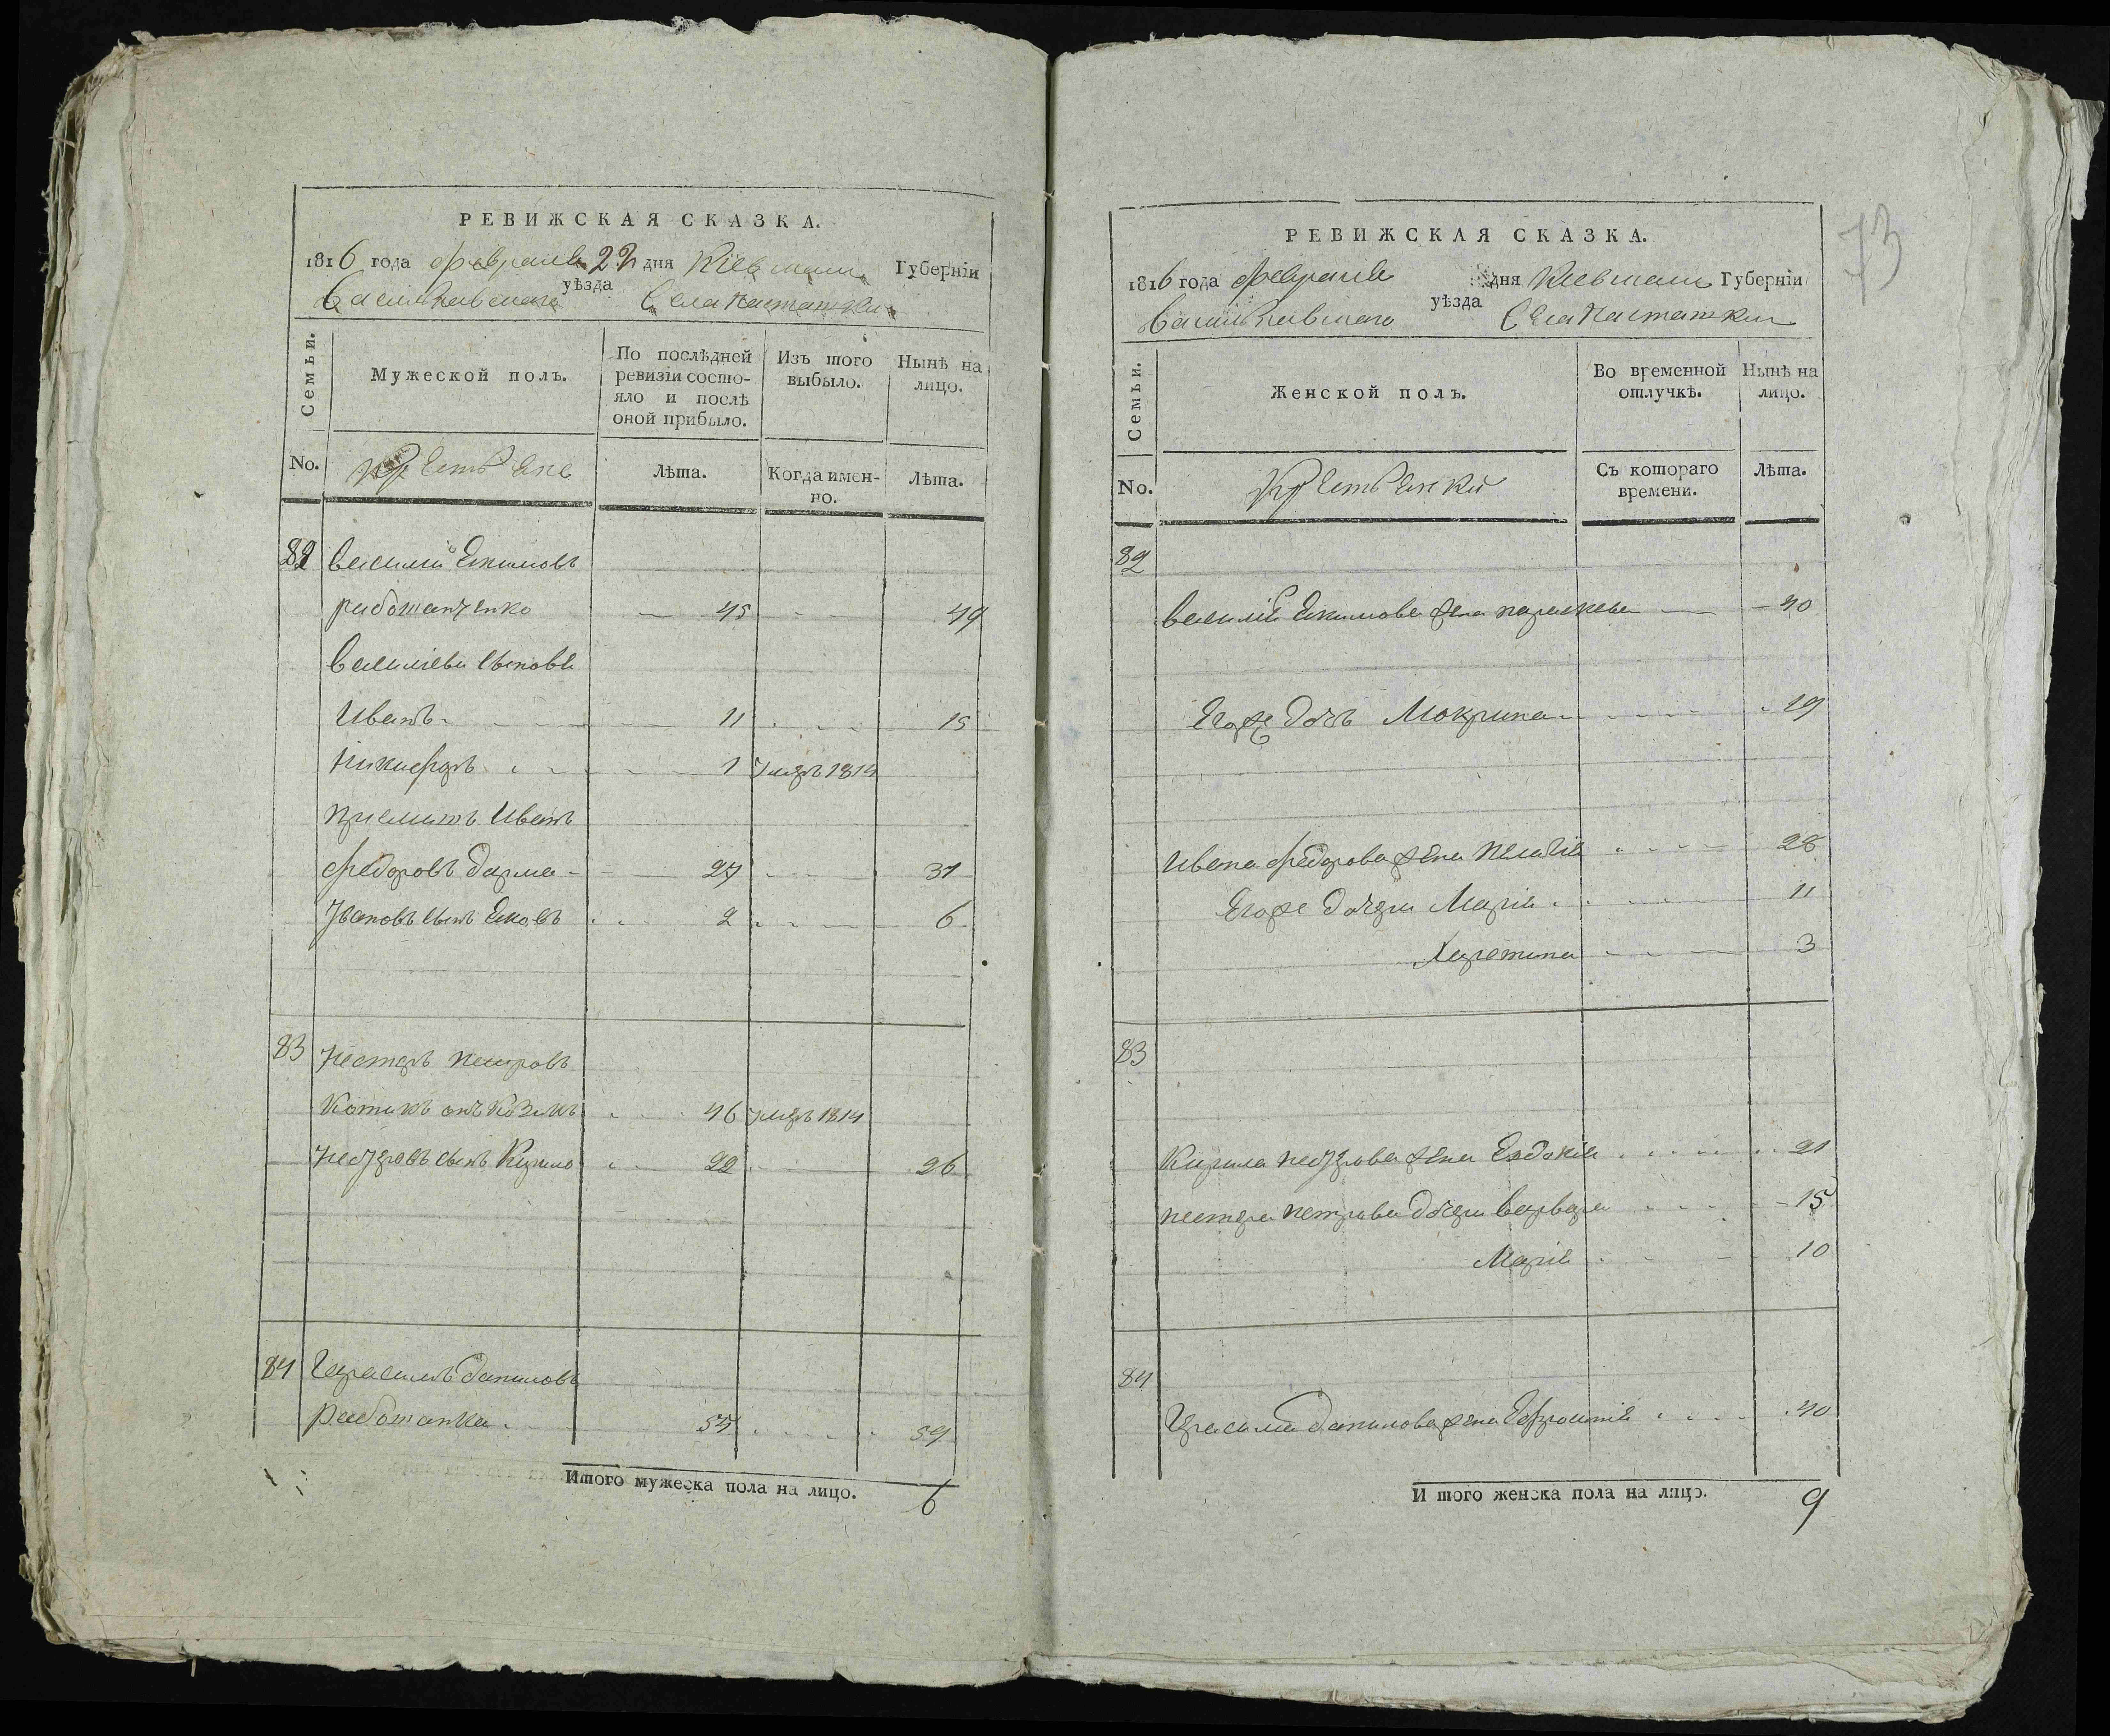 РЕВИЖСКАЯ СКАЗКА.
1816 года Февраля 22 дня Кіевской Губерніи
Василковского уѣзда Села Насташки
Семьи.
Мужеской полъ.
По послѣдней ревизіи состояло и послѣ оной прибыло.
Изъ того выбыло.
Нынѣ на лицо.
No.
Крестьяне
Лѣта.
Когда именно.
Лѣта.
82 Василий Екимовъ
работанченко 45 49
Василіеви сынове
Иванъ 11 15
Никифоръ 1 умеръ 1814
Приемишъ Иванъ
Федоровъ 27 31
Ивановъ сынъ Яковъ 2 6
83 Нестеръ Петровъ
Котикъ 46 умеръ 1814
Нестеровъ сынъ Кирило 22 26
84 Герасимъ Даниловъ
Работанка 57 59
Итого мужеска пола на лицо. 6
73
РЕВИЖСКАЯ СКАЗКА.
1816 года Февраля дня Кіевской Губерніи
Василковского уѣзда Села Насташки
Семьи.
Женской полъ.
Во временной отлучкѣ.
Нынѣ на лицо.
No.
Крестьянки
Съ котораго времени.
Лѣта.
82
Василія Екимова жена параскева 40
Егоже дочь Мокрина 19
Ивана Федорова жена Пелагія 28
Егоже дочери Марія 11
Харетина 3
83
Кирила Нестерова жена Евдокія 21
Нестера Петрова дочери Варвара 15
Марія 10
84
Герасима Данилова жена Ефросинія 40
Итого женска пола на лицо. 9